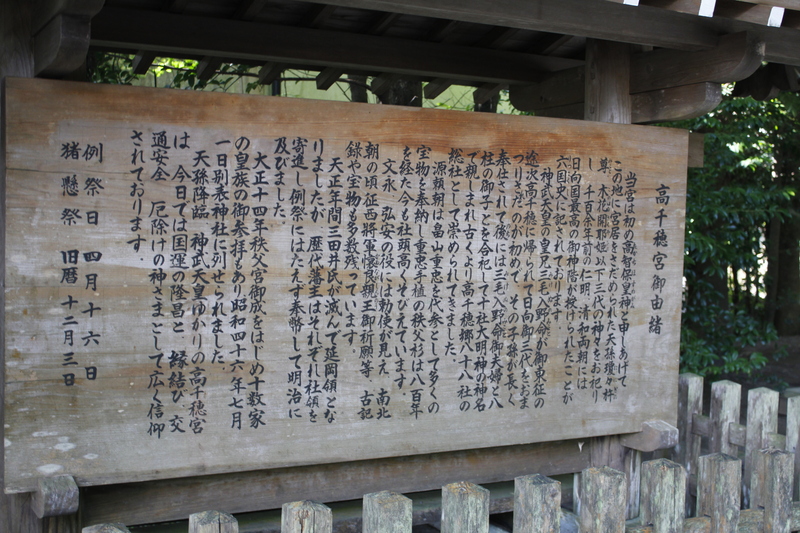 高千穂宮御由緒
当宮は初の高智保皇神と申しあげて
この地に宮居をさだめられた天孫瓊々杵
尊、木花開耶姫以下三代の神々をお祀り
し、千百余年前の仁明、清和両朝には
日向国最高の御神階が授けられたことが
六国史に記されております。
神武天皇の皇兄三毛入野命が御東征の
途次高千穂に帰られて日向御三代をおま
つりさだめたのが初めで、その子孫が長く
奉仕されて後には三毛入野命御夫婦と八
柱の御子とを合祀して十社大明神の神名
で親しまれ古くより高千穂郷八十八社の
総社として崇められてきました。
源頼朝は畠山重忠を代参として多くの
宝物を奉納し重忠手植の秩父杉は八百年
を経た今も社頭高くそびえています。
文永、弘安の役には勅使が見え、南北
朝の頃征西将軍懐良親王御祈願等、古記
録や宝物も多数残っています
天正年間三田井氏が滅んで延岡領とな
りましたが、歴代藩主はそれぞれ社領を
寄進し例祭にはたえず奉幣して明治に
及びました。
大正十四年秩父宮御成をはじめ十数家
の皇族の御参拝もあり昭和四十六年七月
一日別表神社に列せられました。
天孫降臨、神武天皇ゆかりの高千穂宮
は、今日では国運の隆昌と、縁結び、交
通安全、厄除けの神さまとして広く信仰
されております。
例祭日 四月十六日
猪懸祭 旧暦 十二月三日